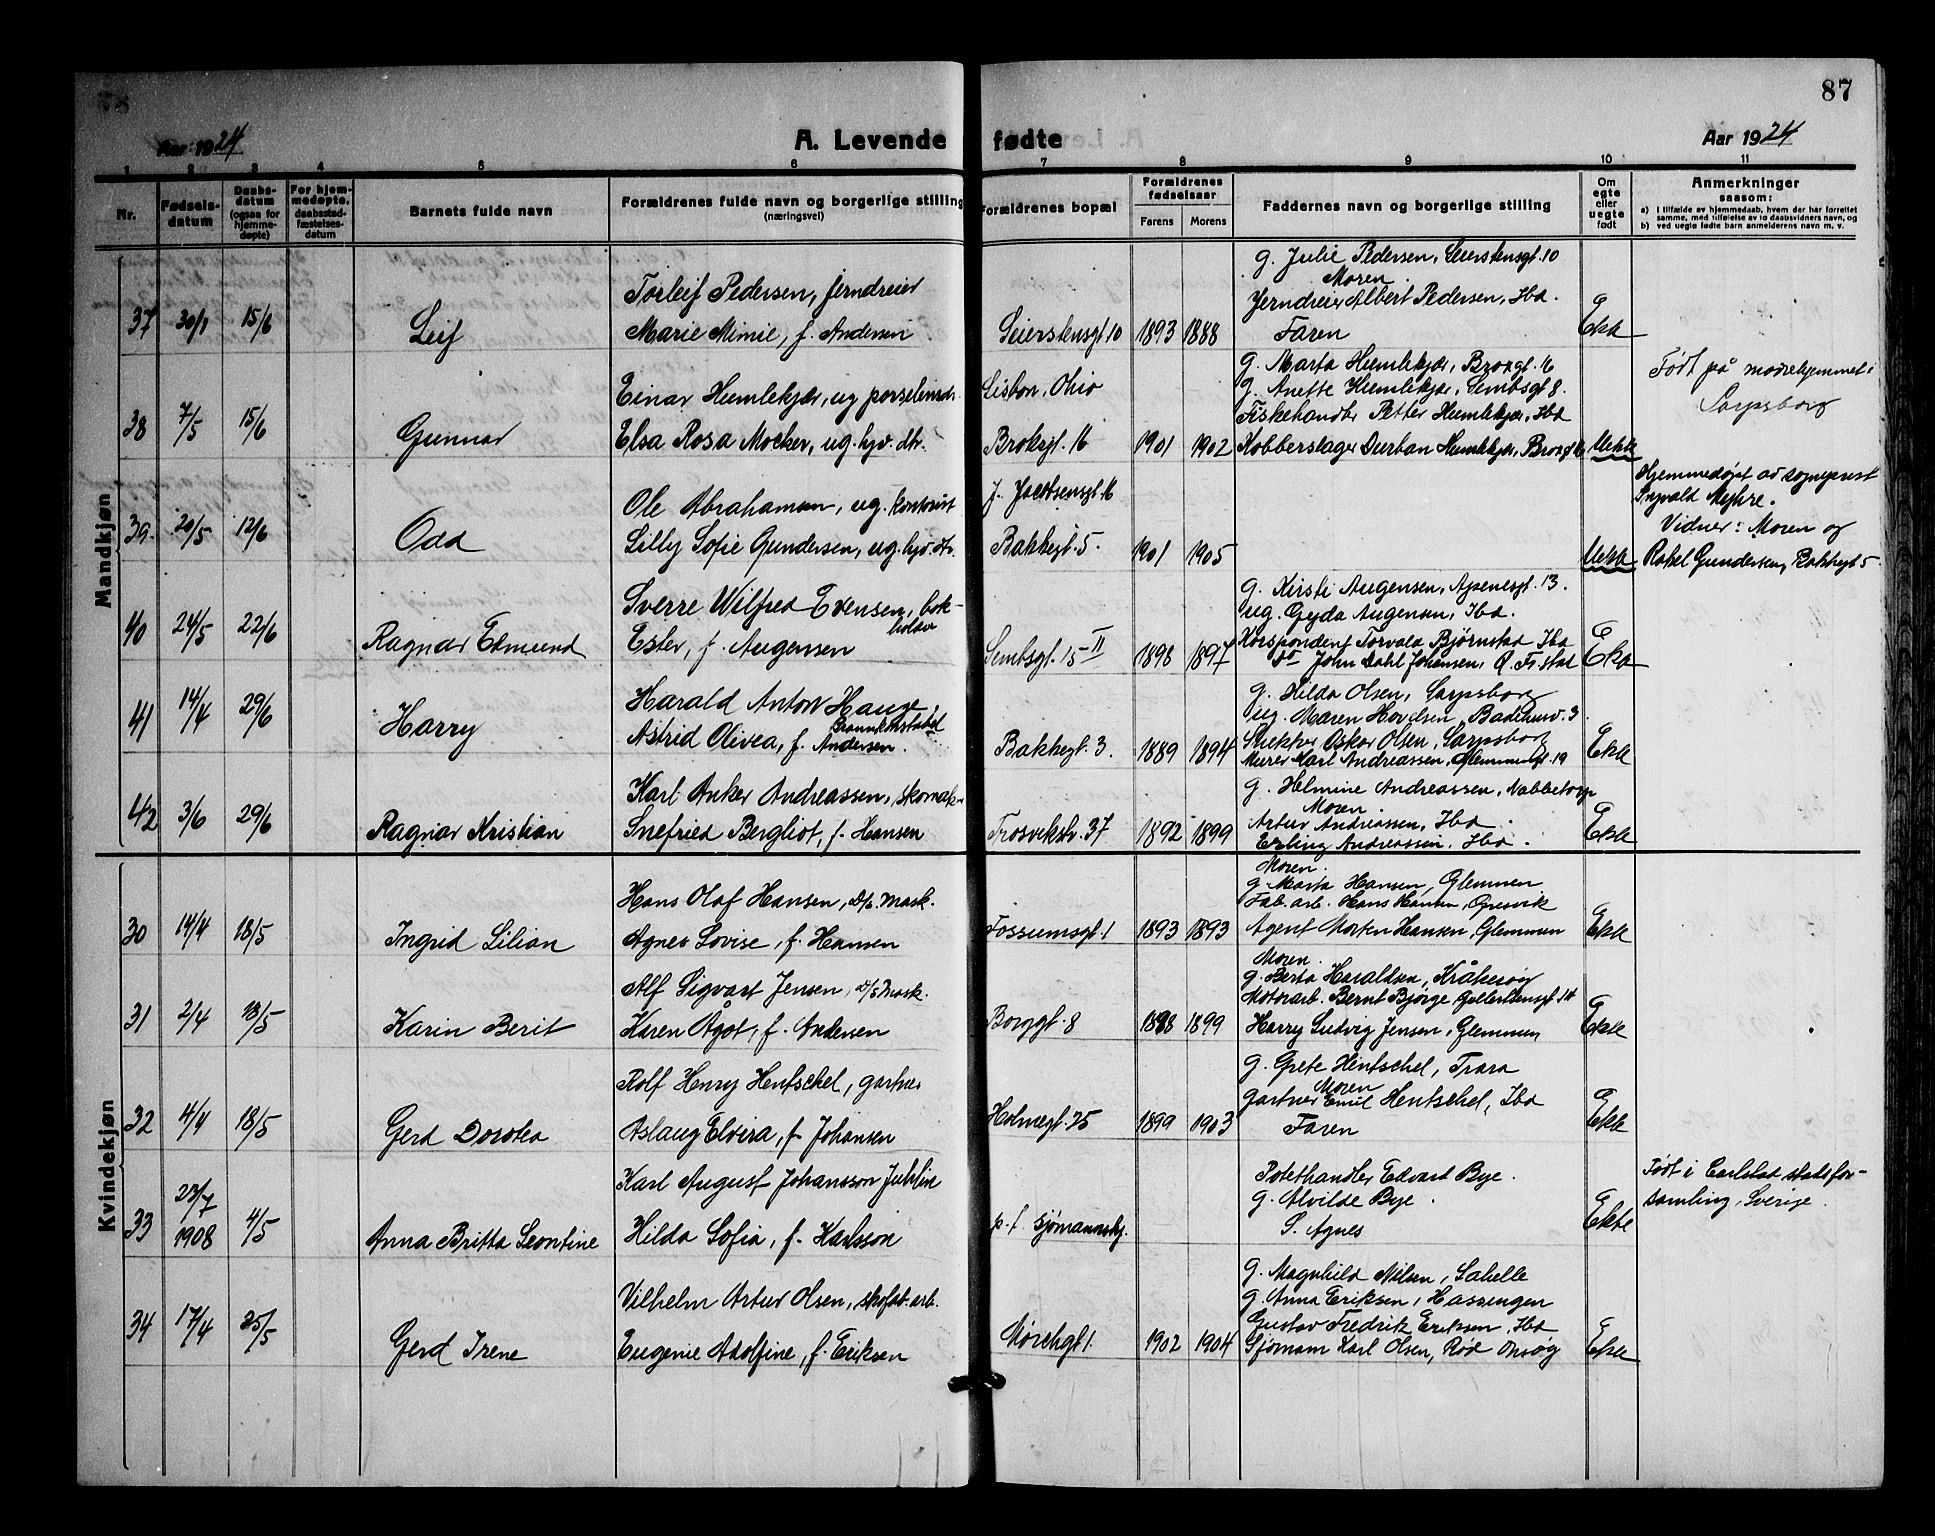 87
Aar 1924
A. Levende fødte
Aar 1924
1 2 3 4 5 6 7 8 9 10 11
Nr.
Fødsels-
datum
Daabs-
datum
(ogsaa for
hjemme-
døpte)
For hjem-
medøpte,
daabsstad-
fæstelses-
datum
Barnets fulde navn
Forældrenes fulde navn og borgerlige stilling
(næringsvei)
Forældrenes bopæl
Forældrenes
fødselsaar
Farens Morens
Faddernes navn og borgerlig stilling
Om
egte
eller
uegte
født
Anmerkninger
saasom:
a) I tilfælde av hjemmedaab, hvem der har forrettet
samme, med tilføielse av to daabsvidners navn, og
b) ved uegte fødte barn anmelderens navn m. v.
Mandkjøn
37 30/1 15/6 Leif
Torleif Pedersen, jerndreier
Marie Mimie, f. Andersen
Seierstensgt. 10 1893 1888
g. Julie Pedersen, Seierstensgt. 10
Moren
Jerndreier Albert Pedersen, Ibd.
Faren
Ekte
38 7/5 15/6 Gunnar
Einar Humlekjær, ug porselensdr.
Elsa Rosa Mocker, ug. hjv. dtr.
Lisbon, Ohio
Broksgt. 16 1901 1902
g. Marta Humlekjær, Broksgt. 16
g. Anette Humlekjær, Sembsgt 8.
Fiskehandler Petter Humlekjær, Ibd
Kobberslager Durban Humlekjær, Broksgt 16
Uekte
Født på mødrehjemmet i
Sarpsborg
39. 20/5 12/6 Odd
Ole Abrahamsen, ug. kontorist
Lilly Sofie Gundersen, ug. hjv. dtr.
J. Jacobsensgt. 16
Bakkegt. 5. 1901 1905
Uekte
Hjemmedøpt av sogneprest
Ingvald Myhre.
Vidner: Moren og
Rakel Gundersen, Bakkegt 5
40 24/5 22/6 Ragnar Edmund
Sverre Wilfred Evensen, bok-
holder
Ester, f. Augensen
Sembsgt. 15 II 1898 1897
g. Kirsti Augensen, Apenesgt. 13.
ug. Gyda Augensen, Ibd.
Korspondent Torvald Bjørnstad Ibd
do John Dahl Johansen, Ø. Fr.stad
Ekte
41 14/4 29/6 Harry
Harald Anton Hauge,
Brannkonstabel
Astrid Olivea, f. Andersen.
Bakkegt. 3. 1889 1894
g. Hilda Olsen, Sarpsborg
ug. Maren Hovelsen, Badehusv. 3
Snekker Oskar Olsen, Sarpsborg
Murer Karl Andreassen, Glemmengt. 19
Ekte
42 3/6 29/6 Ragnar Kristian
Karl Anker Andreassen, skomak.
Snefried Bergliot, f. Hansen
Trosvikstr. 37 1892 1899
g. Helmine Andreassen, Nabbetorp
Moren.
Artur Andreassen, Ibd.
Erling Andreassen, Ibd.
Ekte
Kvindekjøn
30 14/4 18/5 Ingrid Lilian
Hans Olaf Hansen, D/S. Mask.
Agnes Lovise, f. Hansen
Fossumsgt. 1 1893 1893
Moren.
g. Marta Hansen, Glemmen
Fab. arb. Hans Hansen, Gresvik
Agent Morten Hansen, Glemmen
Ekte
31 2/4 18/5 Karin Berit
Alf Sigvart Jensen, D/S Mask.
Karen Ågot, f. Andersen
Borggt. 8 1898 1899
Moren.
g. Berta Haraldsen, Kråkerøy
Motorarb. Bernt Bjørge, 14
Harry Ludvig Jensen, Glemmen
Ekte
32 4/4 18/5 Gerd Dorotea
Rolf Henry Hentschel, gartner
Aslaug Elvira, f. Johansen
Holmegt. 25 1899 1903
g. Grete Hentschel, Trara
Moren
Gartner Emil Hentschel, Ibd
Faren
Ekte
33 23/7 1908 4/5 Anna Britta Leontine
Karl August Johansson Juhlin
Hilda Sofia, f. Karlsson
p. t. Sjømannshj.
Potethandler Edvard Bye.
g. Alvilde Bye.
S. Agnes
Ekte
Født i Carlstad stadsfor-
samling, Sverige
34 17/4 25/5 Gerd Irene
Vilhelm Artur Olsen, skofab. arb.
Eugenie Adolfine, f. Eriksen
Mørchgt 1. 1902 1904
g. Magnhild Nilsen, Labelle
g. Anna Eriksen, Hassengen
Gustav Fredrik Eriksen, Ibd
Sjømann Karl Olsen, Rød Onsøy
Ekte